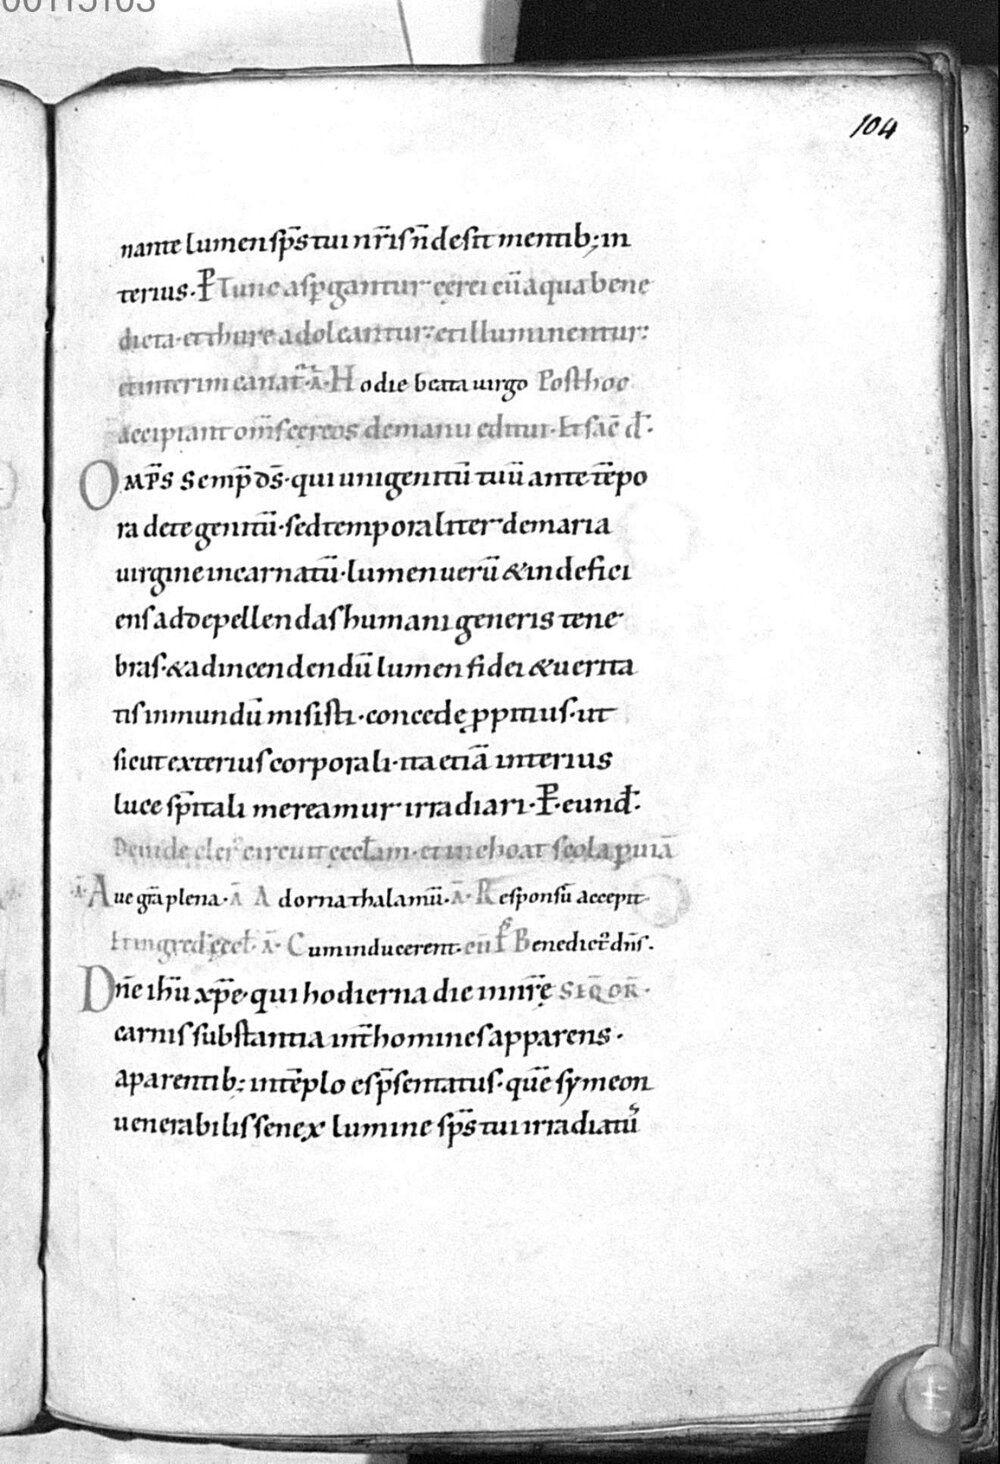 00115103
104
nante lumen sp̅s tui nr̅is n̅ desit mentib; in
terius. P̅ Tunc asp̲gantur cęrei cu̅ aqua bene
dicta. et thure adoleantur: et illuminentur:
et interim canat̅. a̅. Hodie beata uirgo Post hoc
accipiant om̅s cęreos de manu editui. Et sac̅ d̅.
Omp̅s semp̲ ds̅. qui unigenitu̅ tuu̅ ante te̅po
ra de te genitu̅. sed temporaliter de maria
uirgine incarnatu̅. lumen ueru̅ & indefici
ens ad depellendas humani generis tene
bras. & ad incendendu̅ lumen fidei & uerita
tis in mundu̅ misisti. concede p̲pitius. ut
sicut exterius corporali. ita etia̅ interius
luce sp̅itali mereamur irradiari. P̅. eund̅.
Deinde cler̅ circuit ęccl̅am. et inchoat scola p̲ uia̅
a̅. Aue gr̅a plena. a̅ Adorna thalamu̅. a̅. Responsu̅ accepit
Et ingred̅ ęccl̅. a̅. Cum inducerent. cu̅ Benedict̅ dn̅s.
Dn̅e ih̅u xp̅e. qui hodierna die in nr̅ę SIQ̅ OR̅.
carnis substantia int̅ homines apparens.
a parentib; in te̅plo es p̅sentatus. que̅ symeon
uenerabilis senex lumine sp̅s tui irradiatu̅